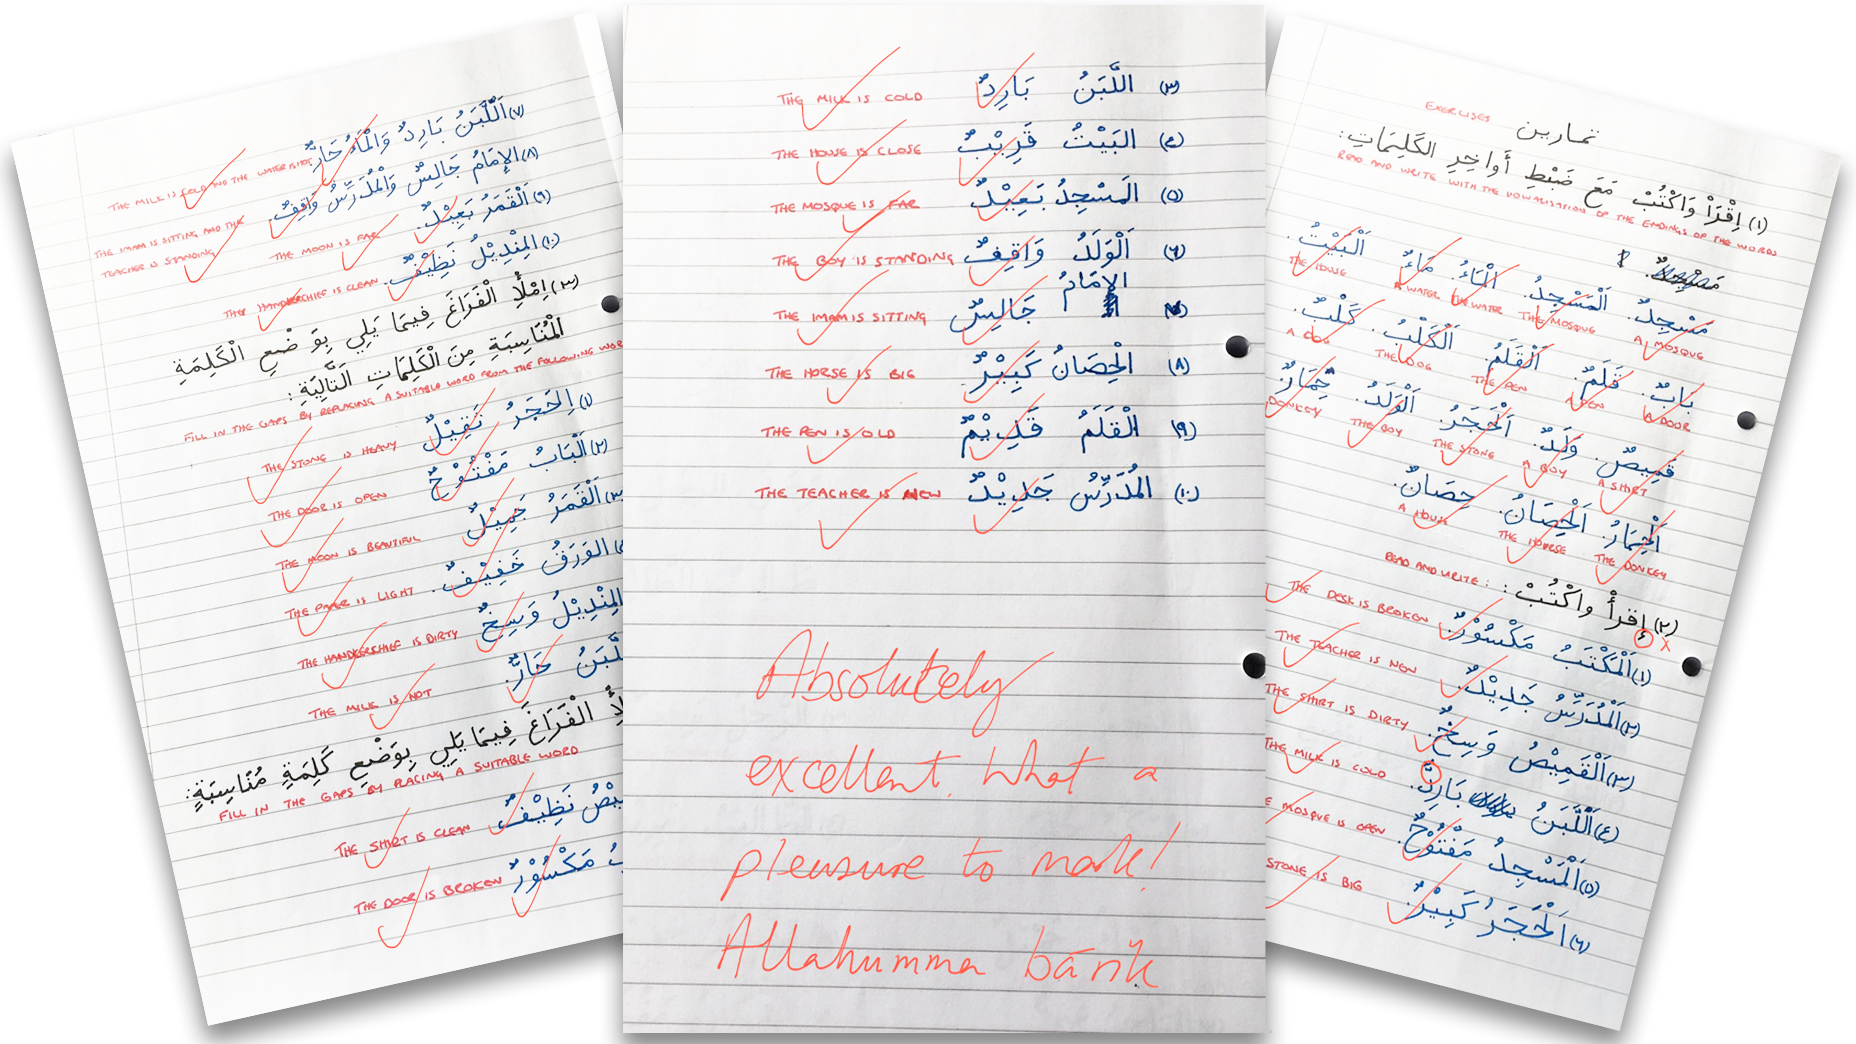 (٧) اَللَّبَنُ بَارِدٌ وَالْمَاءُ حَارٌّ.
THE MILK IS COLD AND THE WATER IS HOT
(٨) الإِمَامُ جَالِسٌ وَالْمُدَرِّسُ وَاقِفٌ.
THE IMAM IS SITTING AND THE
TEACHER IS STANDING
(٩) اَلْقَمَرُ بَعِيْدٌ.
THE MOON IS FAR
(١٠) المِنْدِيْلُ نَظِيْفٌ.
THE HANDKERCHIEF IS CLEAN
(٣) اِمْلَأِ الْفَرَاغَ فِيمَا يَلِي بِوَضْعِ الْكَلِمَةِ
الْمُنَاسِبَةِ مِنَ الْكَلِمَاتِ التَّالِيَةِ:
FILL IN THE GAPS BY REPLACING A SUITABLE WORD FROM THE FOLLOWING WOR
(١) اَلحَجَرُ ثَقِيْلٌ
THE STONE IS HEAVY
(٢) اَلْبَابُ مَفْتُوْحٌ
THE DOOR IS OPEN
(٣) اَلْقَمَرُ جَمِيْلٌ
THE MOON IS BEAUTIFUL
الوَرَقُ خَفِيْفٌ.
THE PAPER IS LIGHT
المِنْدِيْلُ وَسِخٌ
THE HANDKERCHIEF IS DIRTY
لَّبَنُ حَارٌّ.
THE MILK IS HOT
لَأِ الْفَرَاغَ فِيمَا يَلِي بِوَضْعِ كَلِمَةٍ مُنَاسِبَةٍ:
FILL IN THE GAPS BY PLACING A SUITABLE WORD
يْصُ نَظِيْفٌ
THE SHIRT IS CLEAN
بُ مَكْسُوْرٌ
THE DOOR IS BROKEN
(٣) اللَّبَنُ بَارِدٌ
THE MILK IS COLD
(٤) البَيْتُ قَرِيْبٌ
THE HOUSE IS CLOSE
(٥) المَسْجِدُ بَعِيْدٌ
THE MOSQUE IS FAR
(٦) اَلْوَلَدُ وَاقِفٌ
THE BOY IS STANDING
(٧) الإِمَامُ جَالِسٌ
THE IMAM IS SITTING
(٨) الْحِصَانُ كَبِيْرٌ
THE HORSE IS BIG
(٩) الْقَلَمُ قَدِيْمٌ
THE PEN IS OLD
(١٠) المُدَرِّسُ جَدِيْدٌ
THE TEACHER IS NEW
Absolutely
excellent. What a
pleasure to mark!
Allahumma bārik
EXERCISES تمارين
(١) اِقْرَأْ وَاكْتُبْ مَعَ ضَبْطِ أَواخِرِ الكَلِمَاتِ:
READ AND WRITE WITH THE VOWALISATION OF THE ENDINGS OF THE WORDS
مَسْجِدٌ. اَلْمَسْجِدُ. الْمَاءُ. مَاءٌ. اَلْبَيْتُ.
A MOSQUE THE MOSQUE THE WATER A WATER THE HOUSE
بَابٌ. قَلَمٌ. اَلْقَلَمُ. اَلْكَلْبُ. كَلْبٌ.
A DOOR A PEN THE PEN THE DOG A DOG
قَمِيصٌ. وَلَدٌ. اَلْحَجَرُ. اَلْوَلَدُ. حِمَارٌ.
A SHIRT A BOY THE STONE THE BOY DONKEY
اَلْحِمَارُ. اَلْحِصَانُ. حِصَانٌ.
THE DONKEY THE HORSE
READ AND WRITE: (٢) إِقرأْ واكْتُبْ:
(١) اَلْمَكْتَبُ مَكْسُوْرٌ.
THE DESK IS BROKEN
(٢) اَلْمُدَرِّسُ جَدِيْدٌ.
THE TEACHER IS NEW
(٣) اَلْقَمِيْصُ وَسِخٌ.
THE SHIRT IS DIRTY
(٤) اَللَّبَنُ بَارِدٌ.
THE MILK IS COLD
(٥) اَلْمَسْجِدُ مَفْتُوْحٌ.
E MOSQUE IS OPEN
(٦) اَلْحَجَرُ كَبِيْرٌ.
STONE IS BIG